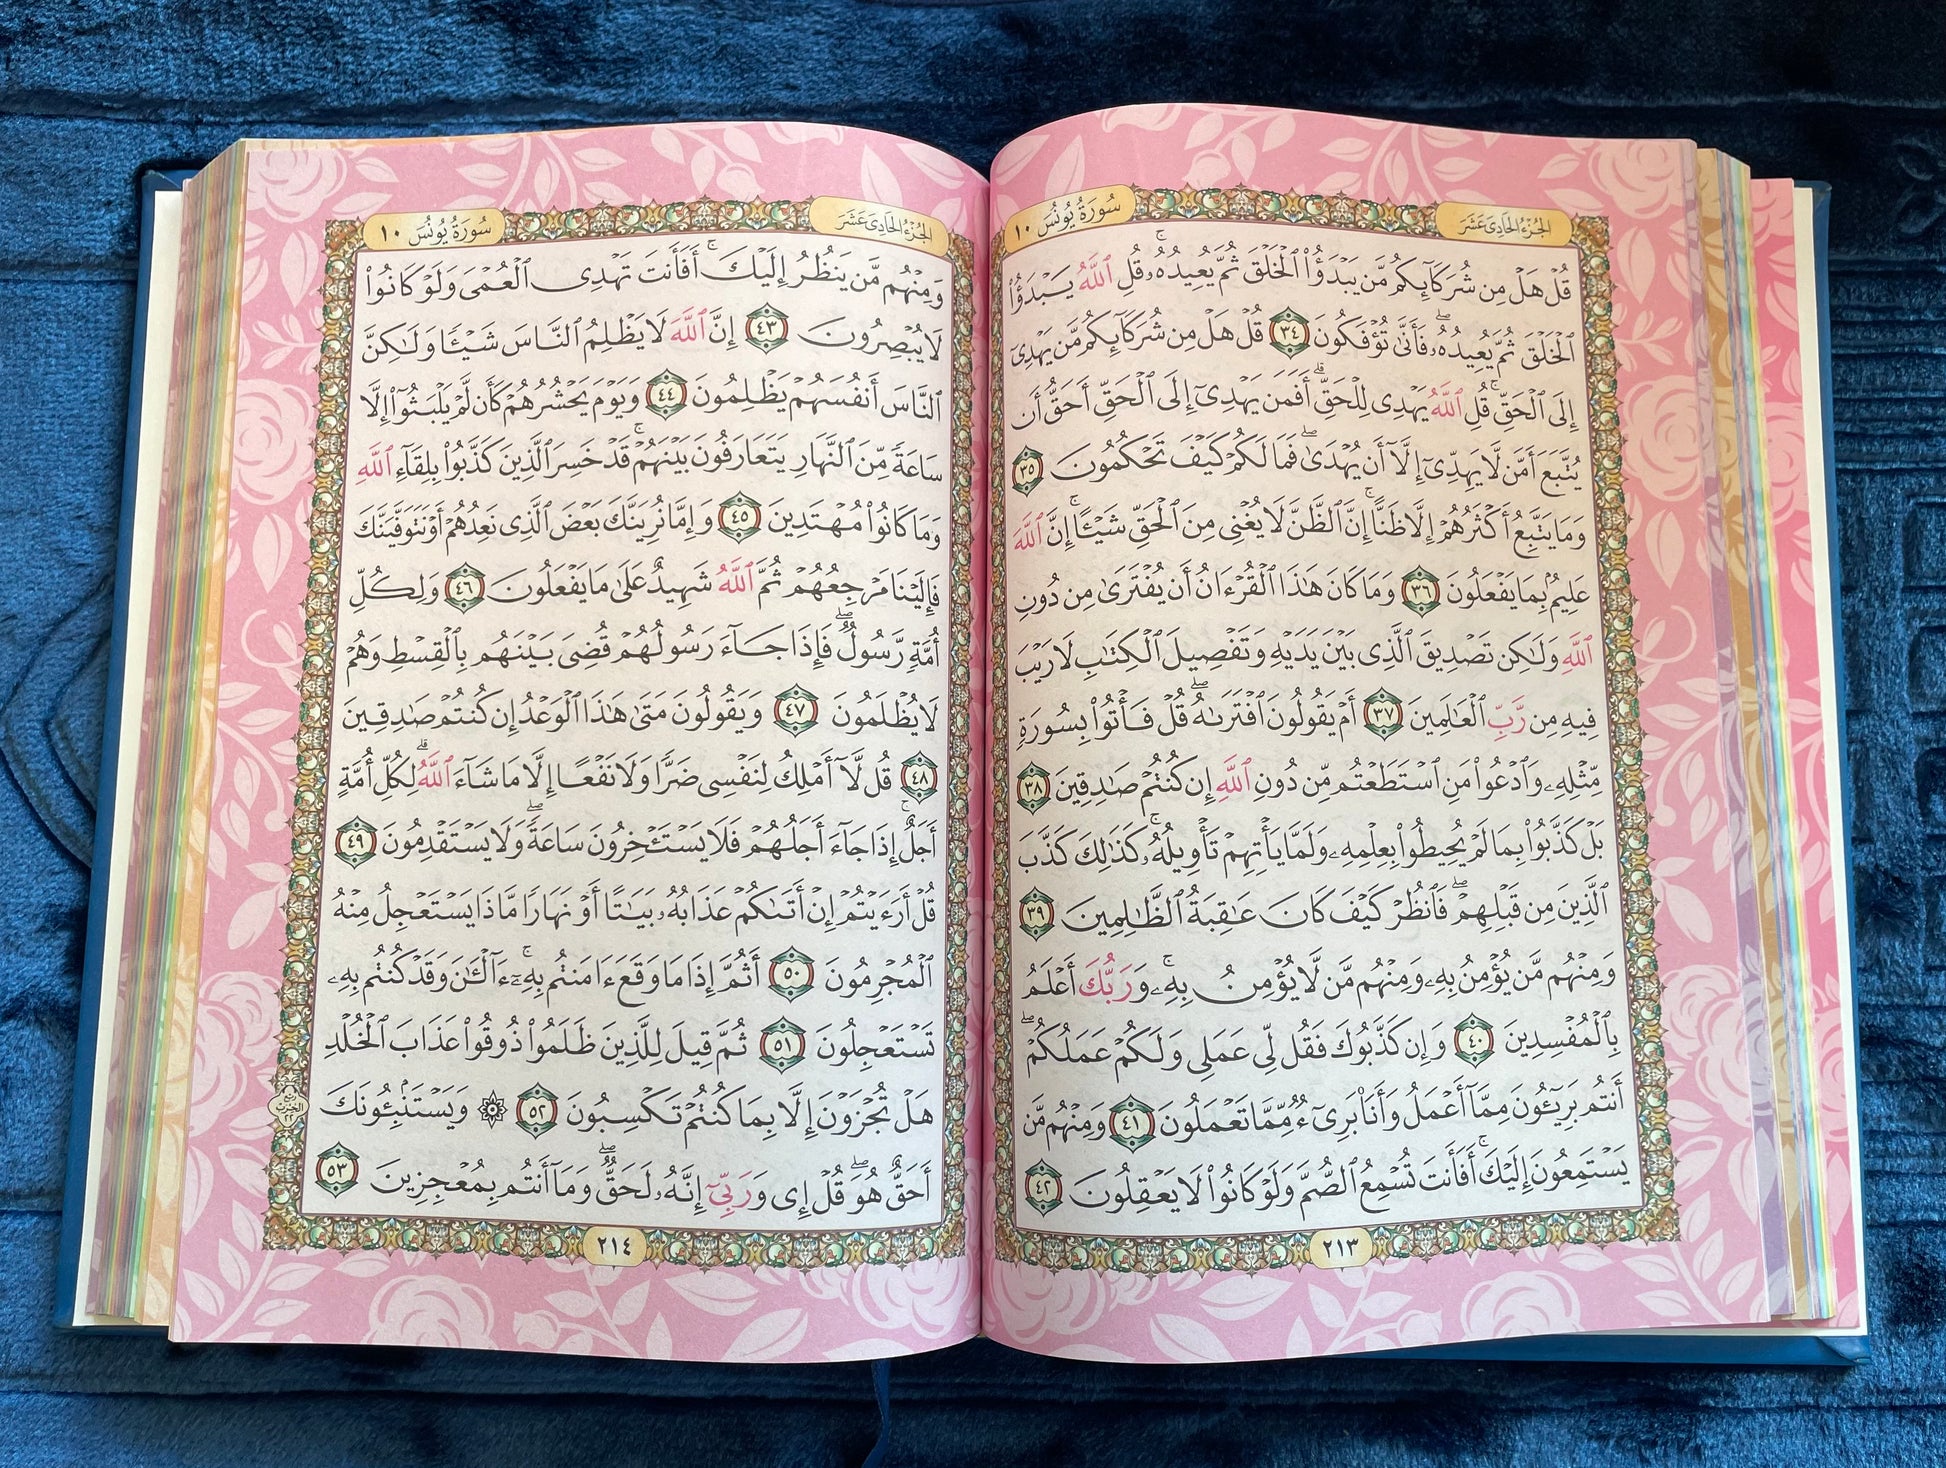 الجُزْءُ الحَادِى عَشَرَ
سُورَةُ يُونُسَ ١٠
قُلْ هَلْ مِن شُرَكَآئِكُم مَّن يَبْدَؤُا۟ ٱلْخَلْقَ ثُمَّ يُعِيدُهُۥ ۚ قُلِ ٱللَّهُ يَبْدَؤُا۟
ٱلْخَلْقَ ثُمَّ يُعِيدُهُۥ ۖ فَأَنَّىٰ تُؤْفَكُونَ ٣٤ قُلْ هَلْ مِن شُرَكَآئِكُم مَّن يَهْدِىٓ
إِلَى ٱلْحَقِّ ۚ قُلِ ٱللَّهُ يَهْدِى لِلْحَقِّ ۗ أَفَمَن يَهْدِىٓ إِلَى ٱلْحَقِّ أَحَقُّ أَن
يُتَّبَعَ أَمَّن لَّا يَهِدِّىٓ إِلَّآ أَن يُهْدَىٰ ۖ فَمَا لَكُمْ كَيْفَ تَحْكُمُونَ ٣٥
وَمَا يَتَّبِعُ أَكْثَرُهُمْ إِلَّا ظَنًّا ۚ إِنَّ ٱلظَّنَّ لَا يُغْنِى مِنَ ٱلْحَقِّ شَيْـًٔا ۚ إِنَّ ٱللَّهَ
عَلِيمٌۢ بِمَا يَفْعَلُونَ ٣٦ وَمَا كَانَ هَـٰذَا ٱلْقُرْءَانُ أَن يُفْتَرَىٰ مِن دُونِ
ٱللَّهِ وَلَـٰكِن تَصْدِيقَ ٱلَّذِى بَيْنَ يَدَيْهِ وَتَفْصِيلَ ٱلْكِتَـٰبِ لَا رَيْبَ
فِيهِ مِن رَّبِّ ٱلْعَـٰلَمِينَ ٣٧ أَمْ يَقُولُونَ ٱفْتَرَىٰهُ ۖ قُلْ فَأْتُوا۟ بِسُورَةٍ
مِّثْلِهِۦ وَٱدْعُوا۟ مَنِ ٱسْتَطَعْتُم مِّن دُونِ ٱللَّهِ إِن كُنتُمْ صَـٰدِقِينَ ٣٨
بَلْ كَذَّبُوا۟ بِمَا لَمْ يُحِيطُوا۟ بِعِلْمِهِۦ وَلَمَّا يَأْتِهِمْ تَأْوِيلُهُۥ ۚ كَذَٰلِكَ كَذَّبَ
ٱلَّذِينَ مِن قَبْلِهِمْ ۖ فَٱنظُرْ كَيْفَ كَانَ عَـٰقِبَةُ ٱلظَّـٰلِمِينَ ٣٩
وَمِنْهُم مَّن يُؤْمِنُ بِهِۦ وَمِنْهُم مَّن لَّا يُؤْمِنُ بِهِۦ ۚ وَرَبُّكَ أَعْلَمُ
بِٱلْمُفْسِدِينَ ٤٠ وَإِن كَذَّبُوكَ فَقُل لِّى عَمَلِى وَلَكُمْ عَمَلُكُمْ ۖ
أَنتُم بَرِيٓـُٔونَ مِمَّآ أَعْمَلُ وَأَنَا۠ بَرِىٓءٌ مِّمَّا تَعْمَلُونَ ٤١ وَمِنْهُم مَّن
يَسْتَمِعُونَ إِلَيْكَ ۚ أَفَأَنتَ تُسْمِعُ ٱلصُّمَّ وَلَوْ كَانُوا۟ لَا يَعْقِلُونَ ٤٢
٢١٣
الجُزْءُ الحَادِى عَشَرَ
سُورَةُ يُونُسَ ١٠
وَمِنْهُم مَّن يَنظُرُ إِلَيْكَ ۚ أَفَأَنتَ تَهْدِى ٱلْعُمْىَ وَلَوْ كَانُوا۟
لَا يُبْصِرُونَ ٤٣ إِنَّ ٱللَّهَ لَا يَظْلِمُ ٱلنَّاسَ شَيْـًٔا وَلَـٰكِنَّ
ٱلنَّاسَ أَنفُسَهُمْ يَظْلِمُونَ ٤٤ وَيَوْمَ يَحْشُرُهُمْ كَأَن لَّمْ يَلْبَثُوٓا۟ إِلَّا
سَاعَةً مِّنَ ٱلنَّهَارِ يَتَعَارَفُونَ بَيْنَهُمْ ۚ قَدْ خَسِرَ ٱلَّذِينَ كَذَّبُوا۟ بِلِقَآءِ ٱللَّهِ
وَمَا كَانُوا۟ مُهْتَدِينَ ٤٥ وَإِمَّا نُرِيَنَّكَ بَعْضَ ٱلَّذِى نَعِدُهُمْ أَوْ نَتَوَفَّيَنَّكَ
فَإِلَيْنَا مَرْجِعُهُمْ ثُمَّ ٱللَّهُ شَهِيدٌ عَلَىٰ مَا يَفْعَلُونَ ٤٦ وَلِكُلِّ
أُمَّةٍ رَّسُولٌ ۖ فَإِذَا جَآءَ رَسُولُهُمْ قُضِىَ بَيْنَهُم بِٱلْقِسْطِ وَهُمْ
لَا يُظْلَمُونَ ٤٧ وَيَقُولُونَ مَتَىٰ هَـٰذَا ٱلْوَعْدُ إِن كُنتُمْ صَـٰدِقِينَ
٤٨ قُل لَّآ أَمْلِكُ لِنَفْسِى ضَرًّا وَلَا نَفْعًا إِلَّا مَا شَآءَ ٱللَّهُ ۗ لِكُلِّ أُمَّةٍ
أَجَلٌ ۚ إِذَا جَآءَ أَجَلُهُمْ فَلَا يَسْتَـْٔخِرُونَ سَاعَةً ۖ وَلَا يَسْتَقْدِمُونَ ٤٩
قُلْ أَرَءَيْتُمْ إِنْ أَتَىٰكُمْ عَذَابُهُۥ بَيَـٰتًا أَوْ نَهَارًا مَّاذَا يَسْتَعْجِلُ مِنْهُ
ٱلْمُجْرِمُونَ ٥٠ أَثُمَّ إِذَا مَا وَقَعَ ءَامَنتُم بِهِۦٓ ۚ ءَآلْـَٔـٰنَ وَقَدْ كُنتُم بِهِۦ
تَسْتَعْجِلُونَ ٥١ ثُمَّ قِيلَ لِلَّذِينَ ظَلَمُوا۟ ذُوقُوا۟ عَذَابَ ٱلْخُلْدِ
هَلْ تُجْزَوْنَ إِلَّا بِمَا كُنتُمْ تَكْسِبُونَ ٥٢ ۞ وَيَسْتَنۢبِـُٔونَكَ
أَحَقٌّ هُوَ ۖ قُلْ إِى وَرَبِّىٓ إِنَّهُۥ لَحَقٌّ ۖ وَمَآ أَنتُم بِمُعْجِزِينَ ٥٣
ربع
الحزب
٢٢
٢١٤